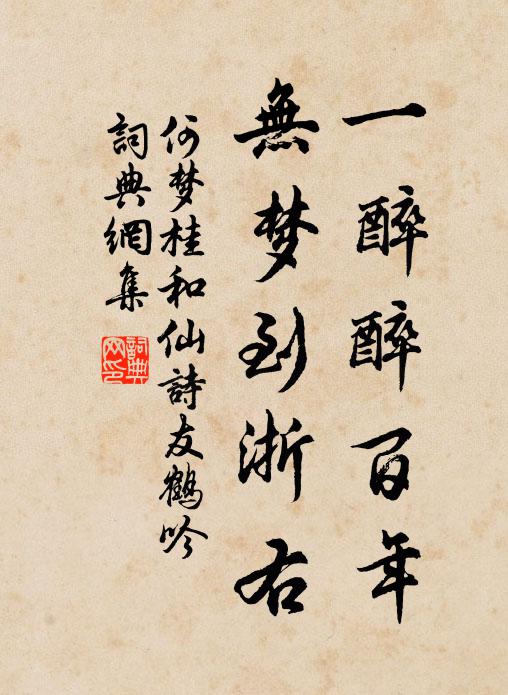 一醉醉百年
無梦到浙右
何梦桂和仙詩友鶴吟
詞典網集
詞典网印